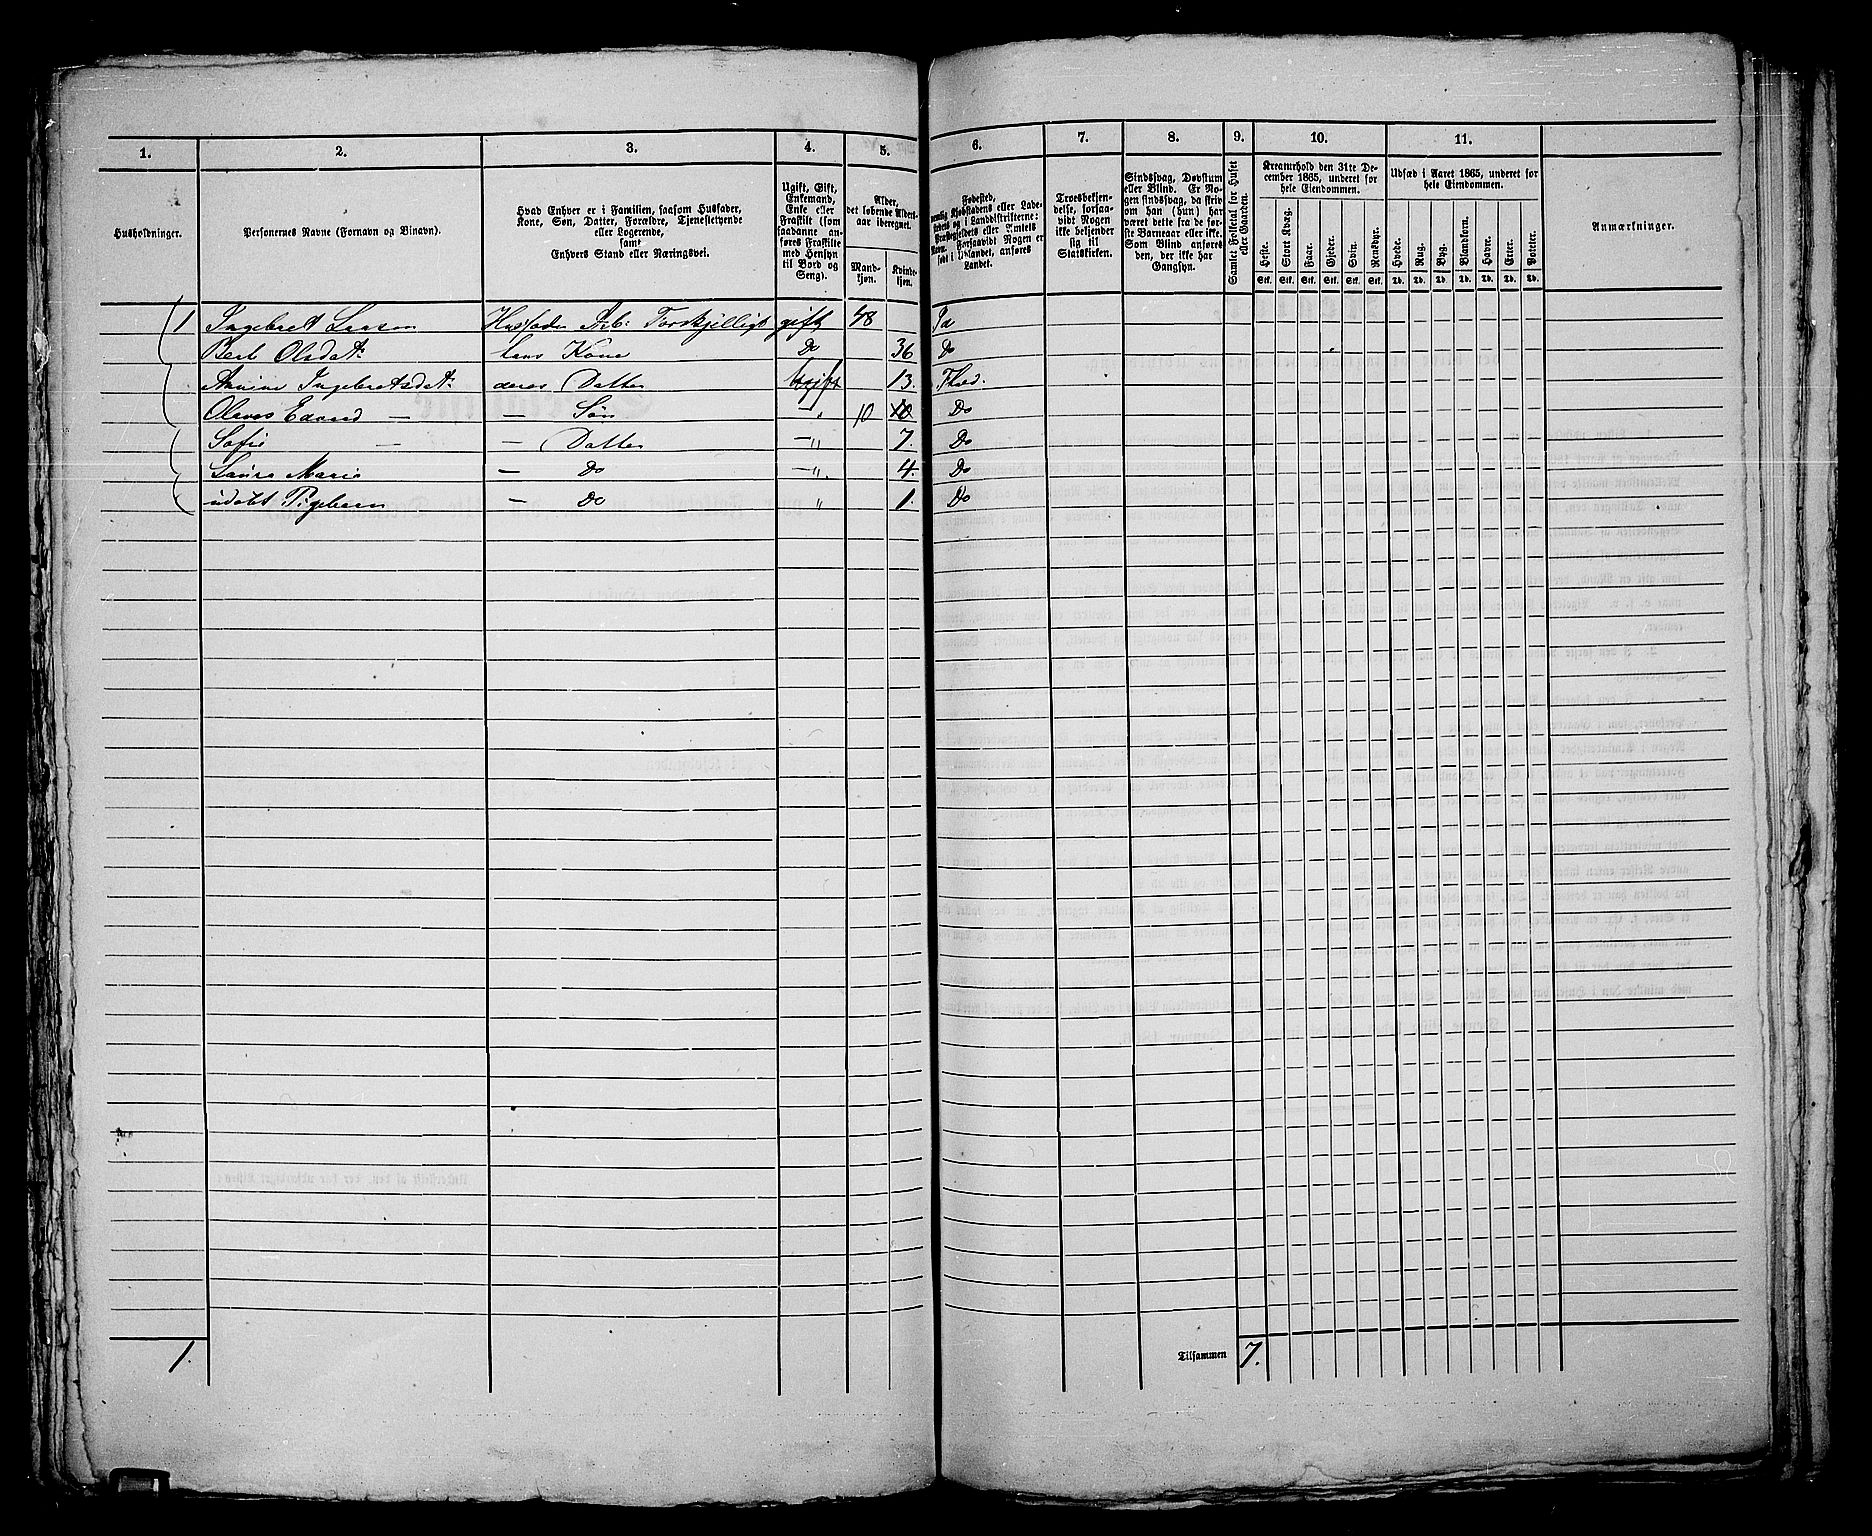 1. 2. 3. 4. 5. 6. 7. 8. 9. 10. 11.
Husholdninger.
Personernes Navne (Fornavn og Binavn).
Hvad Enhver er i Familien, saasom Husfader,
Kone, Søn, Datter, Forældre, Tjenestetyende
eller Logerende,
samt
Enhvers Stand eller Næringsvei.
Ugift, Gift,
Enkemand,
Enke eller
Fraskilt (som
saadanne an-
føres Fraskilte
med Hensyn
til Bord og
Seng).
Alder,
det løbende Alders-
aar iberegnet.
Mand-
kjøn.
Kvinde-
kjøn.
Fødested,
Kjøbstadens eller Lade-
i Landdistrikterne:
eller Amtets
Forsaavidt Nogen er
født i Udlandet, anføres
Landet.
Troesbekjen-
delse, forsaa-
vidt Nogen
ikke bekjender
sig til
Statskirken.
Sindssvag, Døvstum
eller Blind. Er No-
gen sindssvag, da skrives
om han (hun) har
været dette fra de før-
ste Barneaar eller ikke.
Som Blind anføres
den, der ikke har
Gangsyn.
Samlet Folketal for Huset
eller Gaarden.
Kreaturhold den 31te De-
cember 1865, underet for
hele Eiendommen.
Heste. Stort Kvæg. Faar. Gjeder. Svin. Rensdyr.
Stk. Stk. Stk. Stk. Stk. Stk.
Udsæd i Aaret 1865, underet for
hele Eiendommen.
Hvede. Rug. Byg. Blandkorn. Havre. Erter. Poteter.
Td. Td. Td. Td. Td. Td. Td.
Anmærkninger.
1 Ingebret Larsen Husfader Arb: Forskjelligt gift 48
Bert Olsdat: hans Kone Do 36 Do
Annine Ingebretsdat: deres Datter ugift 13.
Olaves Edvard — — Søn — " 10 10 Do
Sofie — — Datter — " 7. Do
Laura Marie — Do — " 4. Do
udøbt Pigebarn — Do " 1. Do
1.
Tilsammen 7.